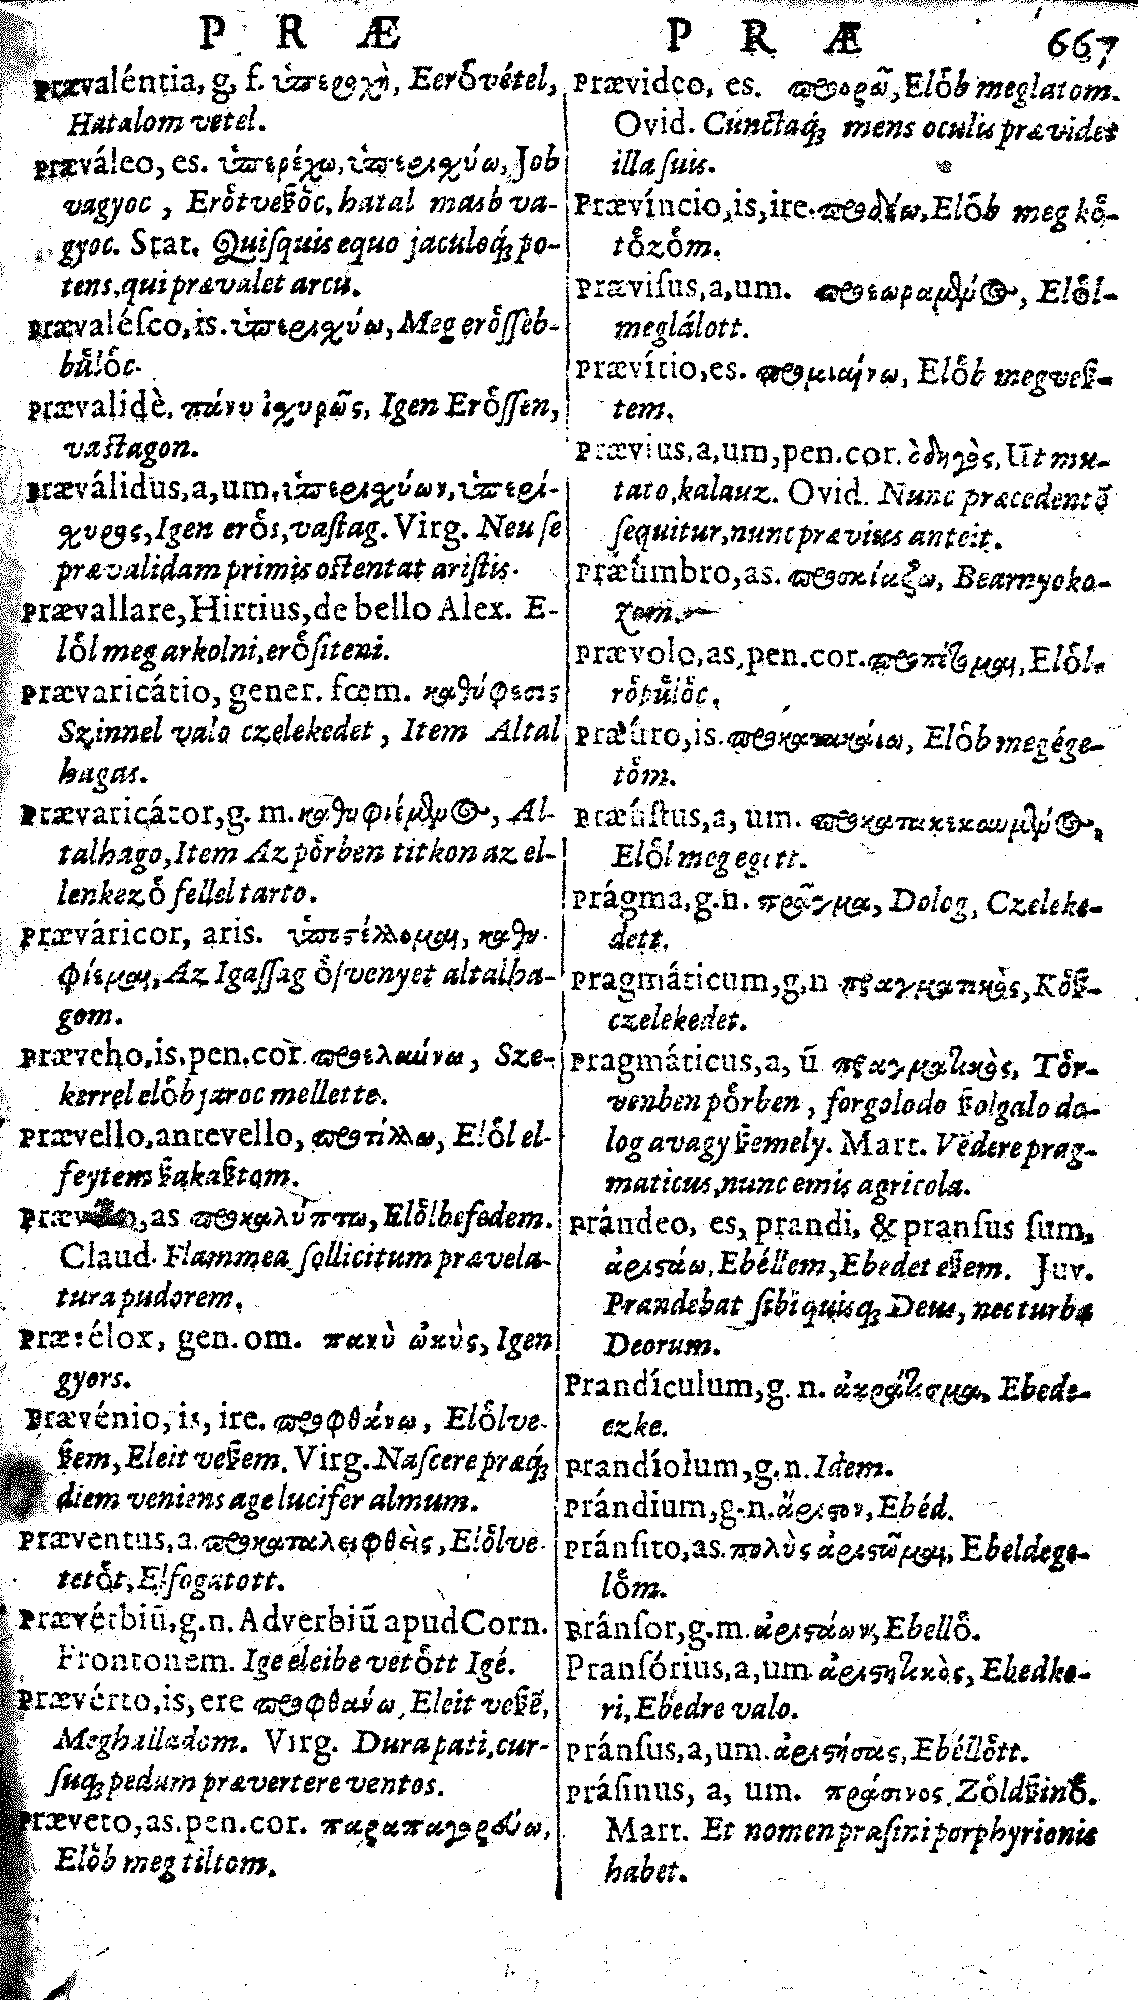 PRÆ PRÆ 667
Prævaléntia, g. f. ὑπεροχὴ, Eerővétel,
Hatalom vetel.
Præváleo, es. ὑπερέχω, ὑπεριχύω, Job
vagyoc, Erőtveßőc, hatal masb va-
gyoc. Stat. Quiſquis equo jaculoq́; po-
tens, qui prævalet arcu.
Prævaléſco, is. ὑπεριχύω, Meg erőſſeb-
bűlőc.
Prævalidè. πάνυ ἰχυρῶς, Igen Erőſſen,
vaſtagon.
Præválidus, a, um, ὑπεριχύων, ὑπερί-
χυρος, Igen erős, vaſtag. Virg. Neu ſe
prævalidam primis oſtentat ariſtis.
Prævallare, Hirtius, de bello Alex. E-
lől meg arkolni, erőſiteni.
Prævaricátio, gener. fœm. καθύφεσις
Szinnel valo czelekedet, Item Altal
hagas.
Prævaricátor, g. m. καθυφιέμενος, Al-
talhago, Item Az pőrben titkon az el-
lenkező fellel tarto.
Præváricor, aris. ὑποστέλλομαι, καθυ-
φίεμαι, Az Igaſſag őſvenyet altalha-
gom.
Præveho, is. pen. cor. προελαύνω, Sze-
kerrel előb jaroc mellette.
Prævello, antevello, προτίλλω, Elől el-
feytem ßakaßtom.
as προκαλύπτω, Elölbefedem.
Claud. Flammea ſollicitum prævela-
tura pudorem.
Prævélox, gen. om. πανὺ ὠκὺς, Igen
gyors.
Prævénio, is, ire. προφθάνω, Elölve-
ßem, Eleit veßem. Virg. Naſcere præq́;
diem veniens age lucifer almum.
Præventus, a. προκαταλειφθεὶς, Elölve-
tetőt, Elfogatott.
Prævérbiũ, g. n. Adverbiũ apud Corn.
Frontonem. Ige eleibe vetőtt Igé.
Prævérto, is, ere προφθανω, Eleit veßẽ,
Meghalladom. Virg. Dura pati, cur-
ſuq́; pedum prævertere ventos.
Præveto, as. pen. cor. παραπαγορεύω,
Elöb meg tiltom.
Prævideo, es. προορῶ, Elöb meglatom.
Ovid. Cúnctaq́; mens oculis prævidet
illa ſuis.
Prævíncio, is, ire. προδέω, Elöb meg kő-
tőzőm.
Præviſus, a, um. προεωραμένος, Elől-
meglálott.
Prævítio, es. προμιαίνω, Elöb megveß-
tem.
Prævius, a, um, pen. cor. ὁδηγὸς, Ut mu-
tato, kalauz. Ovid. Nunc præcedentẽ
ſequitur, nunc prævius anteit.
Præúmbro, as. προσκίαζω, Bearnyoko-
zom.
Prævolo, as, pen. cor. προπέτομαι, Elől-
rőpűlőc.
Præúro, is. προκατακαίω, Elöb megége-
tőm.
Præúſtus, a, um. προκατακεκαυμένος,
Elől meg egett.
Prágma, g. n. πρᾶγμα, Dolog, Czeleke-
dett.
Pragmáticum, g. n πραγματικὸς, Kőß-
czelekedet.
Pragmáticus, a, ũ πραγματικὸς, Tőr-
venben pőrben, forgolodo ßolgalo do-
log avagy ßemely. Mart. Vẽdere prag-
maticus, nunc emis agricola.
Prándeo, es, prandi, & pranſus ſum,
ἀριστάω, Ebéllem, Ebedet eßem. Juv.
Prandebat ſibi quisq; Deus, nec turba
Deorum.
Prandículum, g. n. ἀκράτισμα, Ebede-
ezke.
Prandíolum, g. n. Idem.
Prándium, g. n. ἄριστον, Ebéd.
Pránſito, as. πολὺς ἀριστῶμαι, Ebeldege-
lőm.
Pránſor, g. m. ἀριστάων, Ebellő.
Pranſórius, a, um ἀριστητικὸς, Ebedke-
ri, Ebedre valo.
Pránſus, a, um. ἀριστήσας, Ebéllőtt.
Práſinus, a, um. πράσινος, Zőldßinő.
Mart. Et nomen praſini porphyrionis
habet.